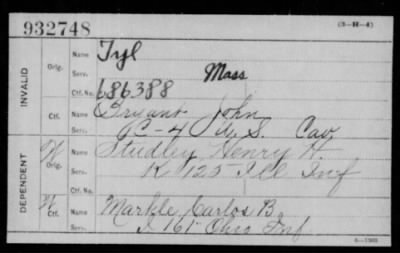 932748
(3-H-4)
INVALID
Orig.
Name Tyl
Serv. Mass
Ctf. No. 686388
Ctf.
Name Bryant John
Serv. C-4 U.S. Cav.
DEPENDENT
W
Orig.
Name Studley Henry H.
Serv. K 125 Ill Inf
Ctf. No.
W
Ctf.
Name Markle Carlos B.
Serv. I 161 Ohio Inf